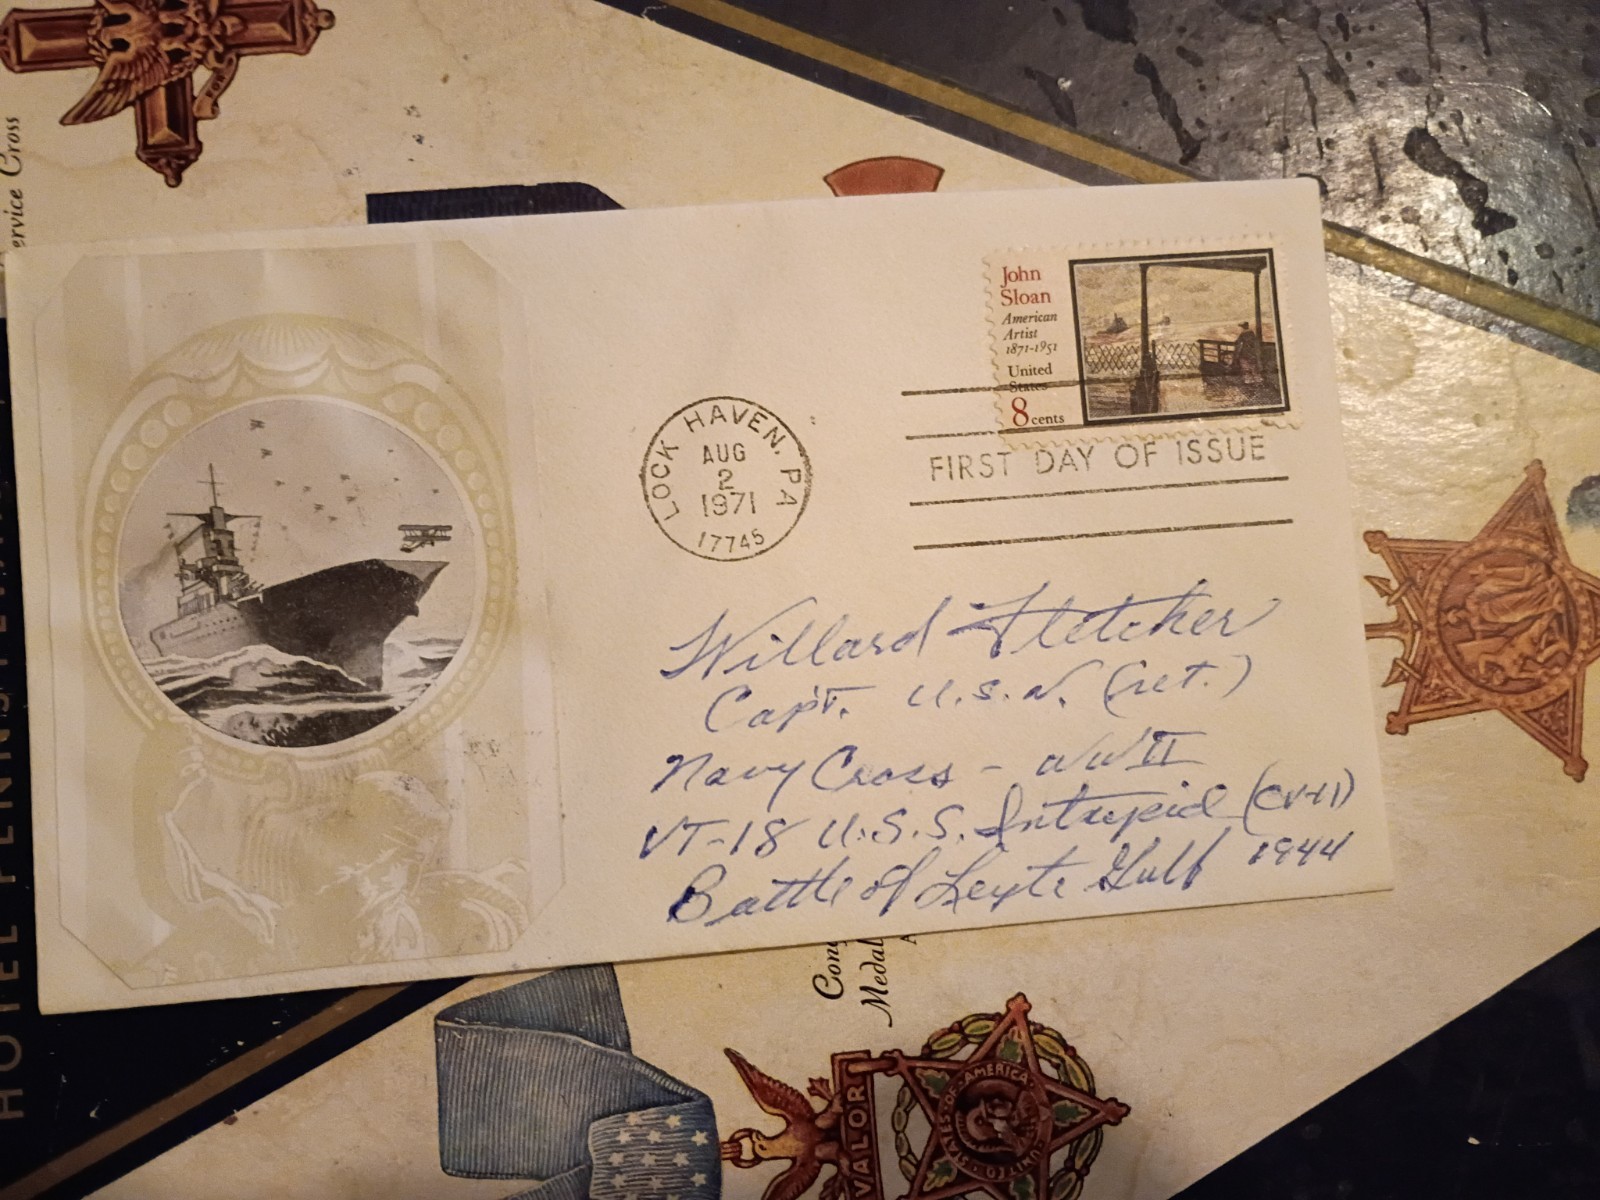 ervice Cross
FOR
John
Sloan
American
Artist
1871-1951
United
States
8 cents
LOCK HAVEN, PA
AUG
2
1971
17745
FIRST DAY OF ISSUE
Willard Fletcher
Capt. U.S.N. (ret.)
Navy Cross - WW II
VT-18 U.S.S. Intrepid (CV-11)
Battle of Leyte Gulf 1944
Con
Medal
VALOR
UNITED STATES OF AMERICA
HOTEL PENNS